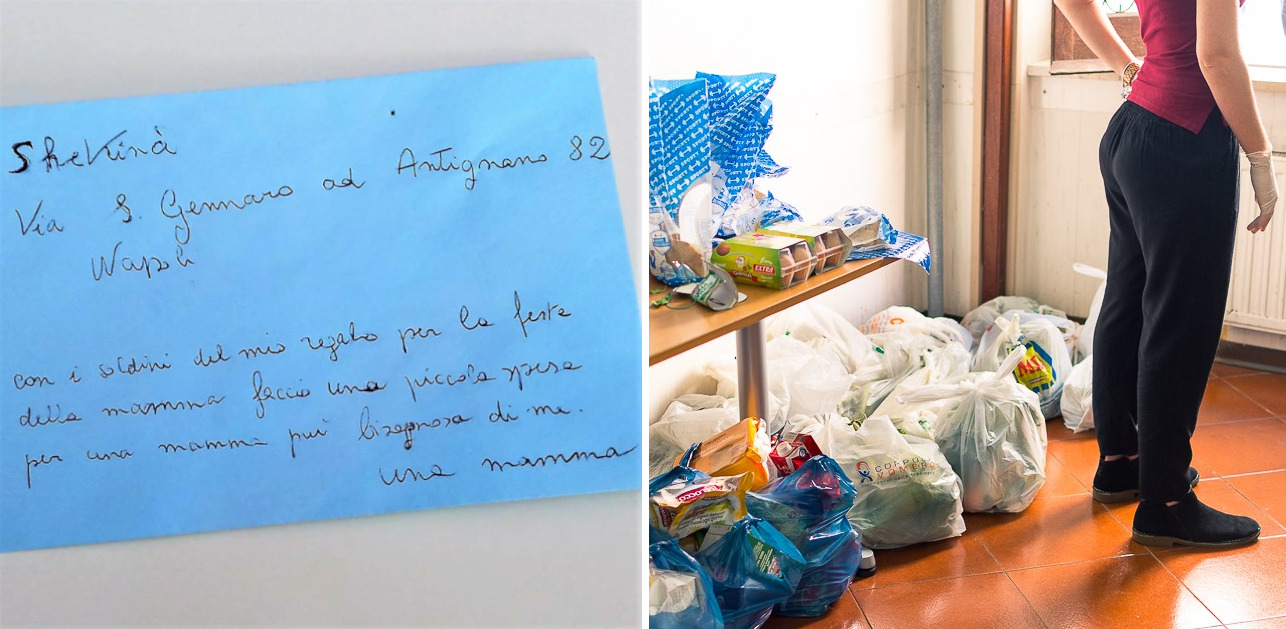 Shekinà
Via S. Gennaro ad Antignano 82
Napoli
con i soldini del mio regalo per la festa
della mamma faccio una piccola spesa
per una mamma puì bisognosa di me.
una mamma
EXTRA